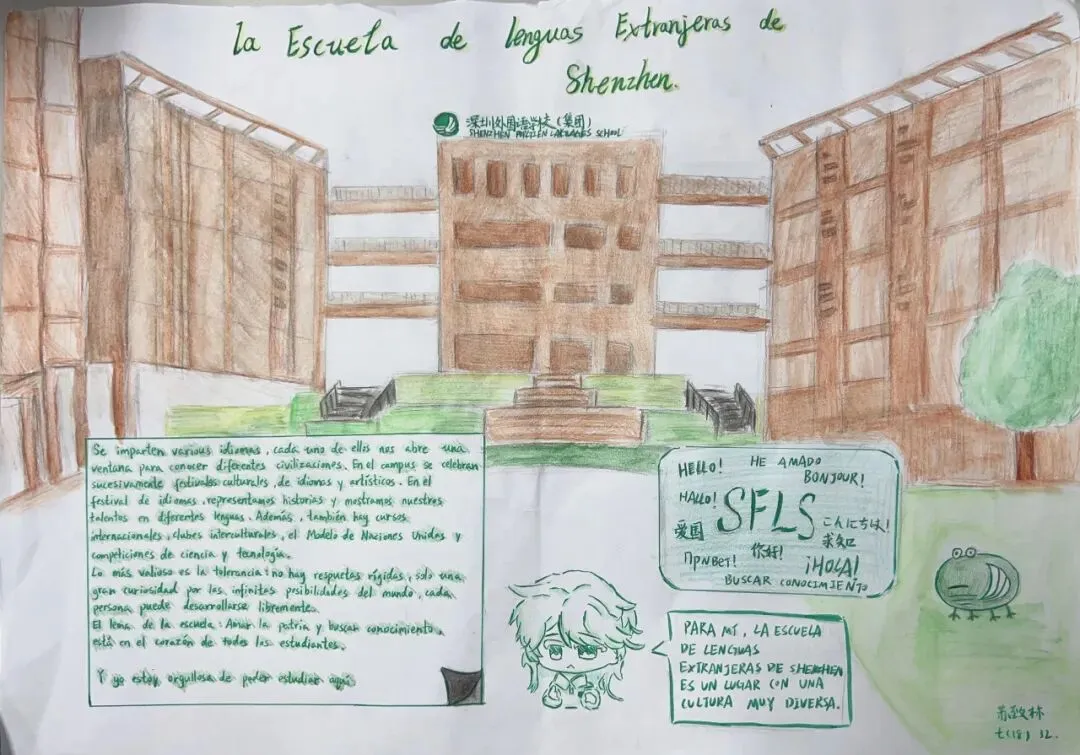 la Escuela de lenguas Extranjeras de
Shenzhen.
深圳外国语学校（集团）
SHENZHEN FOREIGN LANGUAGES SCHOOL
Se imparten various idiomas, cada uno de ellos nos abre una
ventana para conocer diferentes civilizaciones. En el campus se celebran
sucesivamente festivales culturales, de idiomas y artísticos. En el
festival de idiomas, representamos historias y mostramos nuestros
talentos en diferentes lenguas. Además, también hay cursos
internacionales, clubes interculturales, el Modelo de Naciones Unidas y
competiciones de ciencia y tecnología.
Lo más valioso es la tolerancia: no hay respuetas rígidas, solo una
gran curiosidad por las infinitas prsibilidades del mundo, cada
persona puede desarrollarse libremente.
El lema de la escuela: Amar la patria y buscar conocimiento,
está en el corazón de todos los estudiantes.
Y yo estoy orgullosa de poder estudiar aquí
HELLO!
HE AMADO
BONJOUR!
HALLO!
SFLS
爱国
こんにちは!
求知
你好!
ПРИВЕТ!
¡HOLA!
BUSCAR CONOCIMIENTO
PARA MÍ, LA ESCUELA
DE LENGUAS
EXTRANJERAS DE SHENZHEN
ES UN LUGAR CON UNA
CULTURA MUY DIVERSA.
七(18) 32.